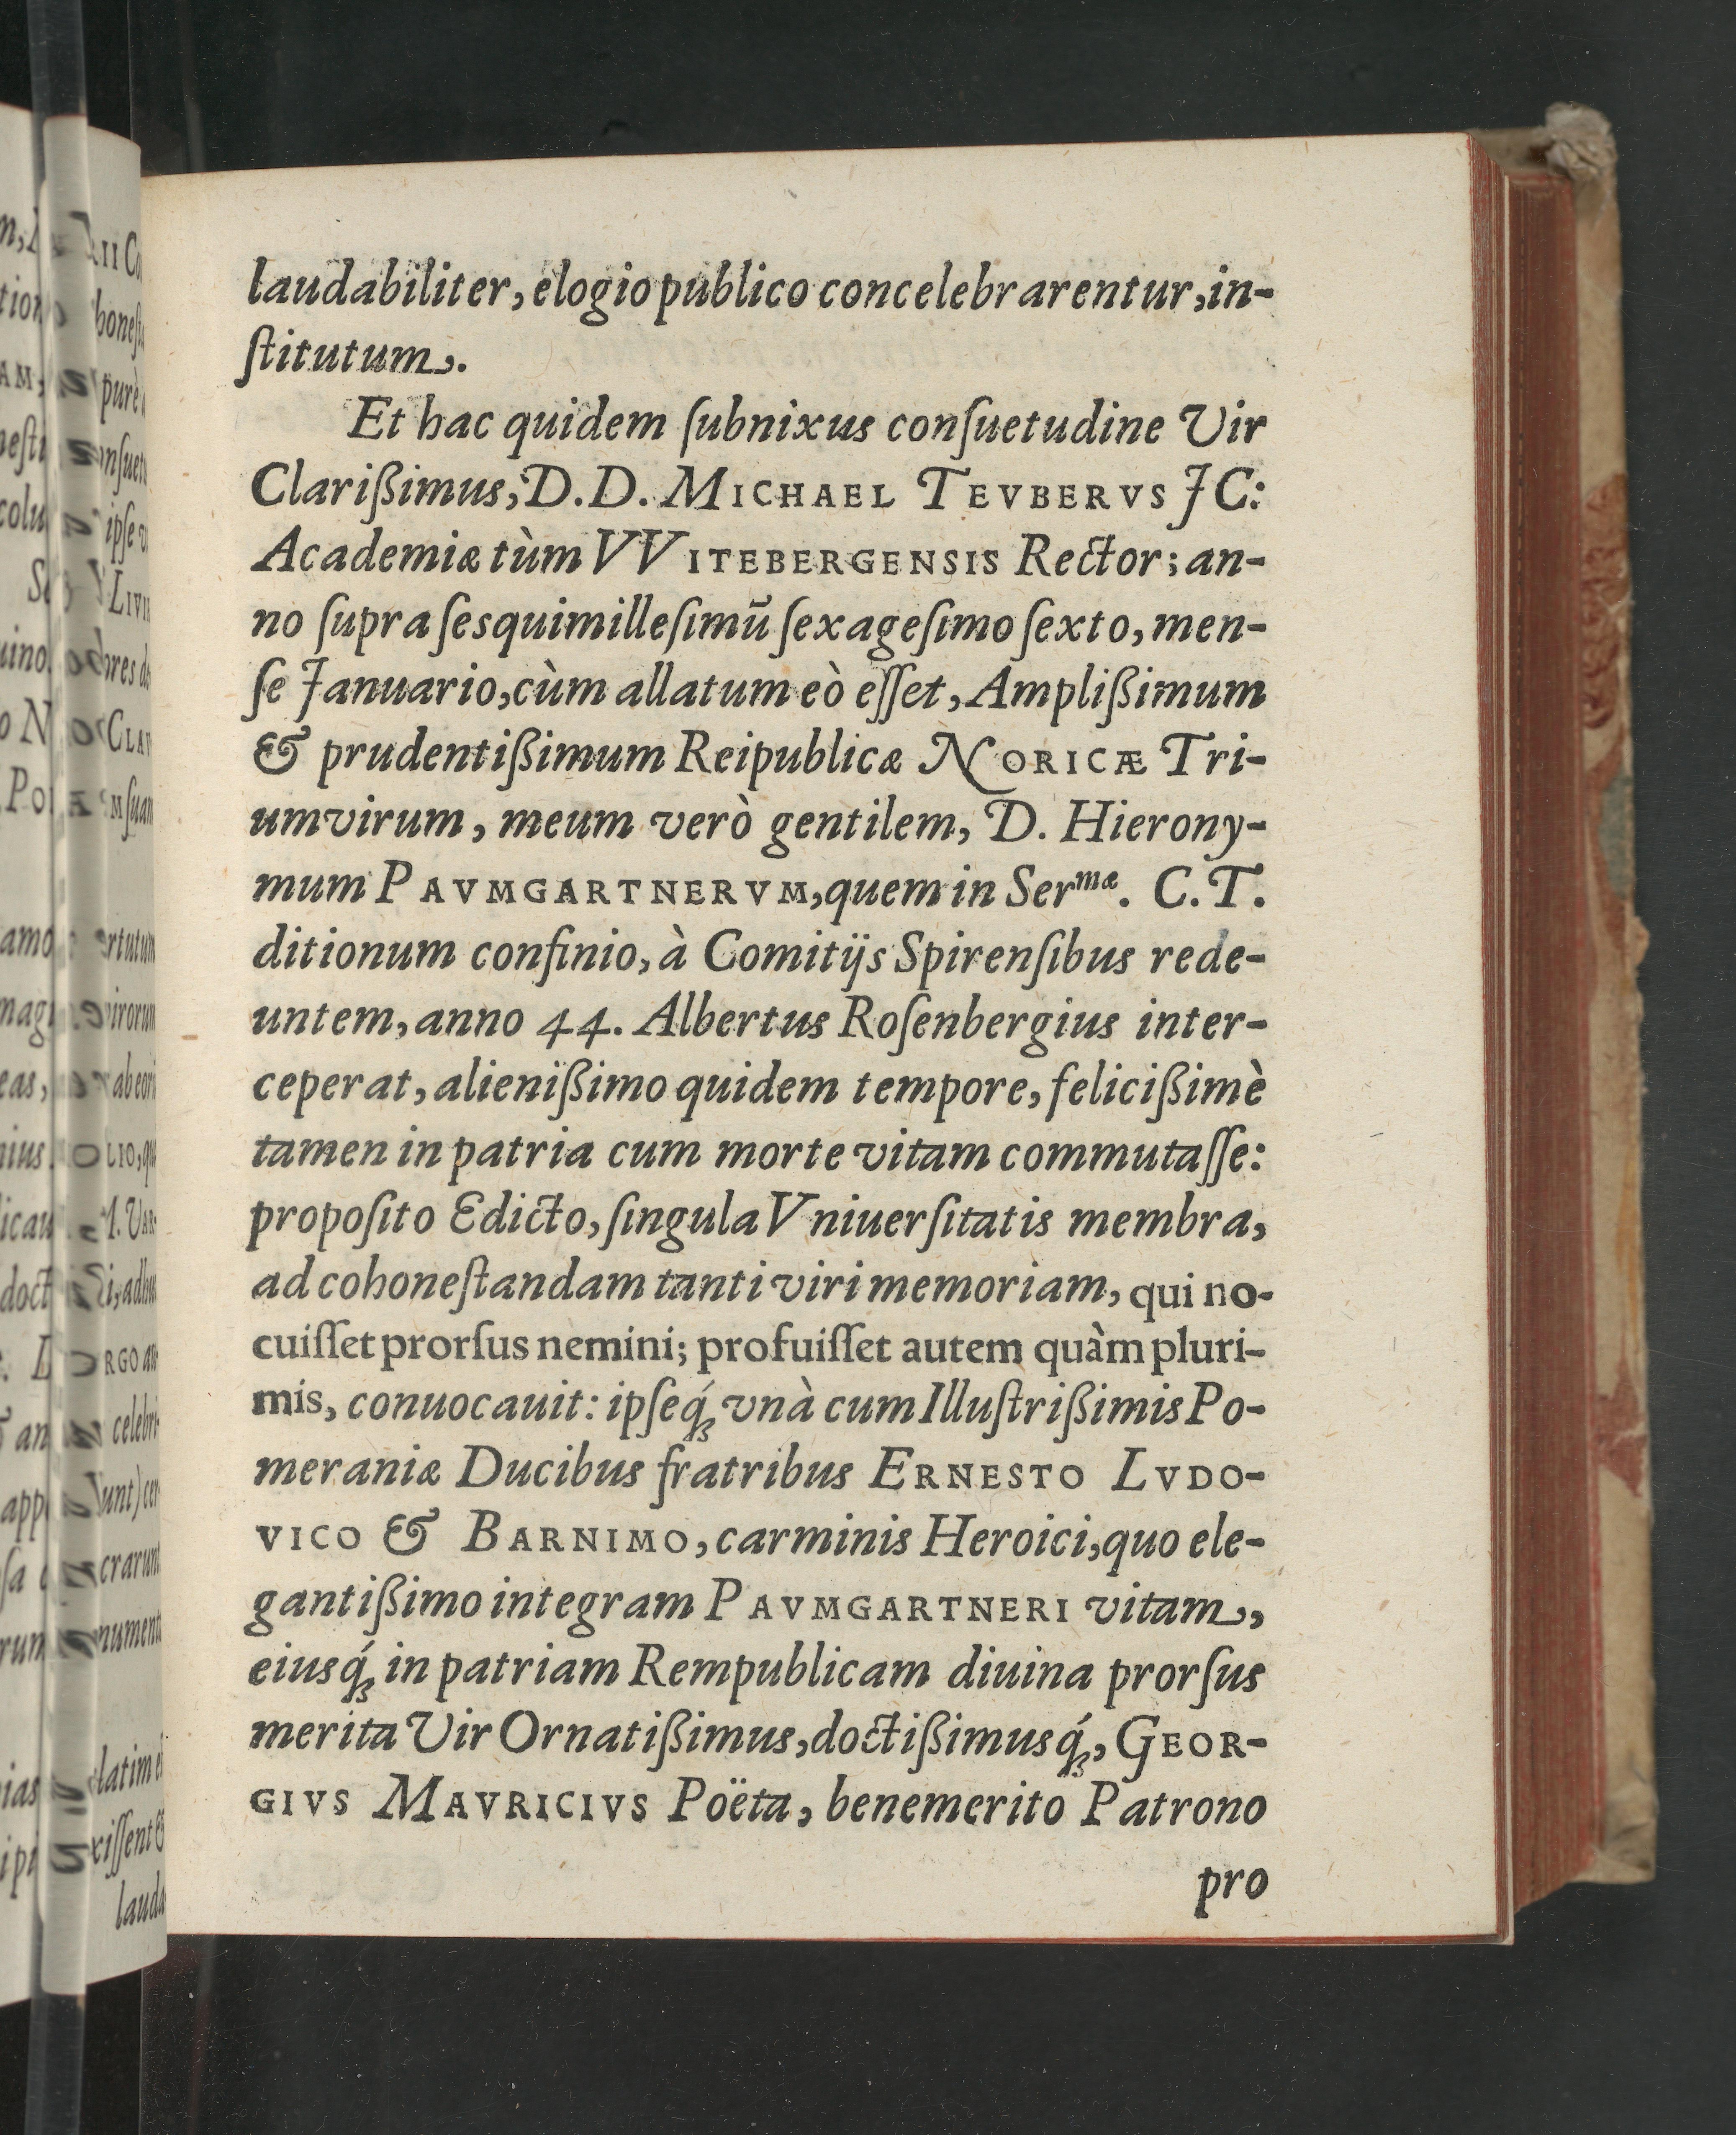 laudabiliter, elogio publico concelebrarentur, in-
ſtitutum.
Et hac quidem ſubnixus conſuetudine Vir
Clarißimus, D.D. MICHAEL TEVBERVS JC:
Academiæ tùm VVITEBERGENSIS Rector; an-
no ſupra ſesquimilleſimū ſexageſimo ſexto, men-
ſe Januario, cùm allatum eò eſſet, Amplißimum
& prudentißimum Reipublicæ NORICÆ Tri-
umvirum, meum verò gentilem, D. Hierony-
mum PAVMGARTNERVM, quem in Serᵐᵃᵉ. C.T.
ditionum confinio, à Comitijs Spirenſibus rede-
untem, anno 44. Albertus Roſenbergius inter-
ceperat, alienißimo quidem tempore, felicißimè
tamen in patria cum morte vitam commutaſſe:
propoſito Edicto, ſingula Vniuerſitatis membra,
ad cohoneſtandam tanti viri memoriam, qui no-
cuiſſet prorſus nemini; profuiſſet autem quàm pluri-
mis, conuocauit: ipſeq́ꝫ vnà cum Illuſtrißimis Po-
meraniæ Ducibus fratribus ERNESTO LVDO-
VICO & BARNIMO, carminis Heroici, quo ele-
gantißimo integram PAVMGARTNERI vitam,
eiusq́ꝫ in patriam Rempublicam diuina prorſus
merita Vir Ornatißimus, doctißimusq́ꝫ, GEOR-
GIVS MAVRICIVS Poëta, benemerito Patrono
pro